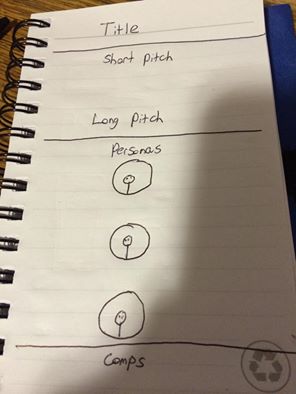 Title
Short Pitch
Long Pitch
Personas
Comps